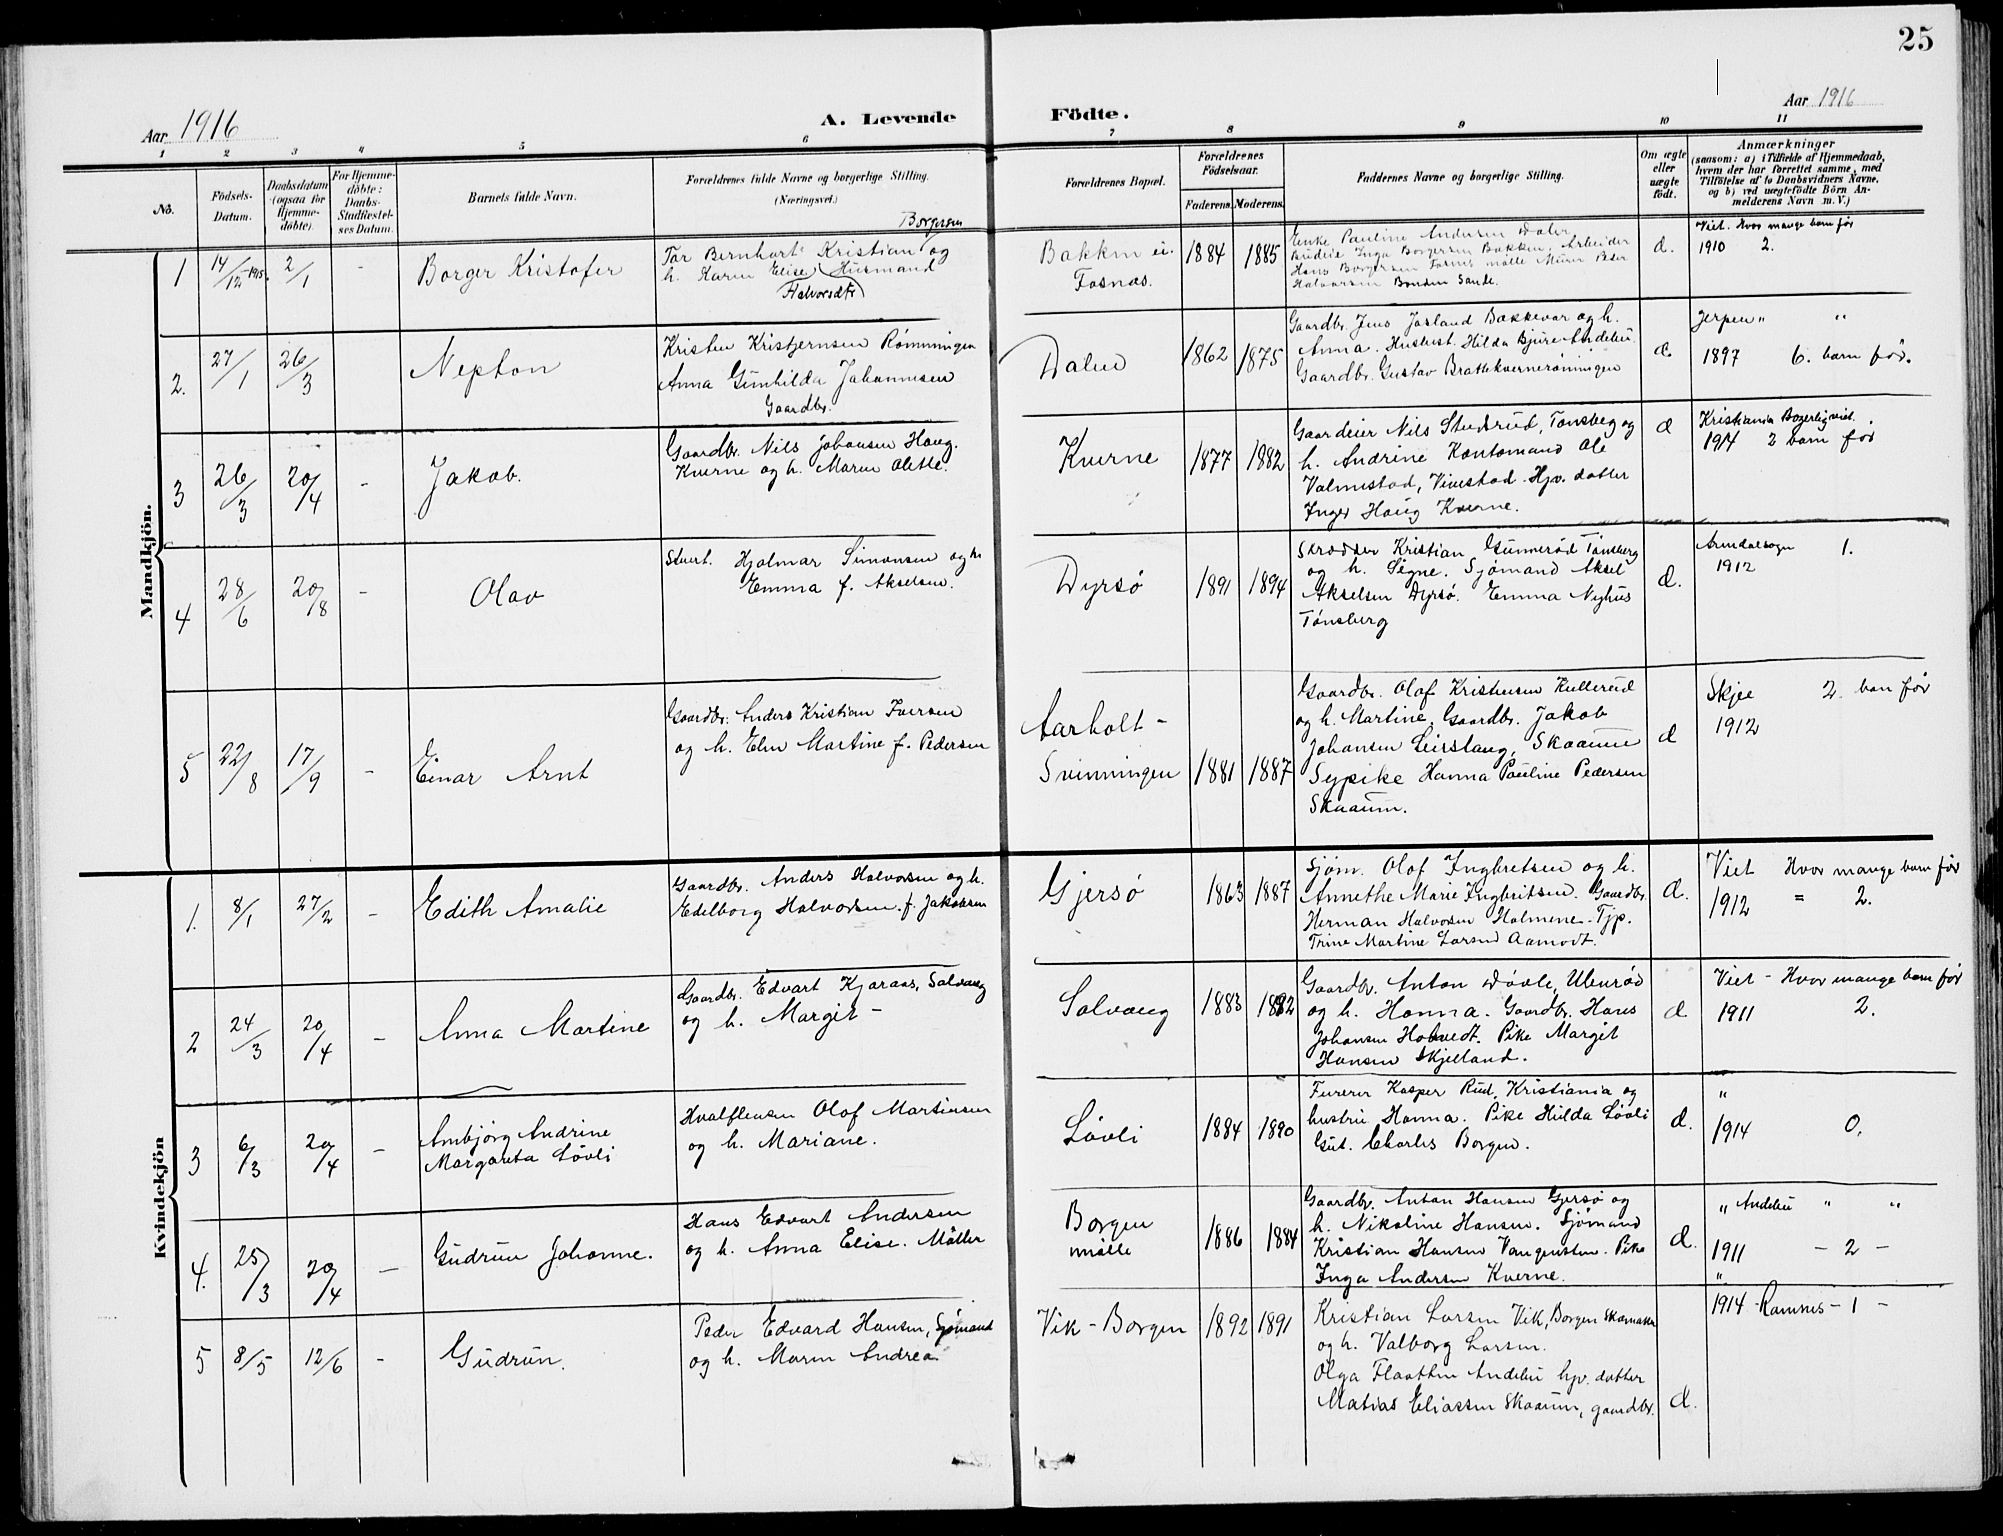 25
Aar 1916
A. Levende
Födte.
Aar 1916
1 2 3 4 5 6 7 8 9 10 11
No.
Födsels-
Datum.
Daabsdatum
(ogsaa for
Hjemme-
döbte)
For Hjemme-
döbte:
Daabs-
Stadfæstel-
ses Datum.
Barnets fulde Navn.
Forældrenes fulde Navne og borgerlige Stilling.
(Næringsvei.)
Forældrenes Bopæl.
Forældrenes
Födselsaar.
Faderens.
Moderens.
Faddernes Navne og borgerlige Stilling.
Om ægte
eller
uægte
födt.
Anmærkninger
(saasom: a) i Tilfælde af Hjemmedaab,
hvem der har forrettet samme, med
Tilföielse af to Daabsvidners Navne,
og b) ved uægtefödte Börn An-
melderens Navn m. V.)
Mandkjön.
1
14/12 1915.
2/1
-
Borger Kristofer
Borgersen
Tor Bernhart Kristian og
h. Karen Elise Husmand
Halvorsdtr
Bakken ei.
Fosnæs.
1884
1885
Enke Pauline Andersen Daler
Budeie Inga Borgersen Bakken, Arbeider
Hans Borgersen Fosnes mølle Murer Peder
Halvorsen Bonden Sande.
d.
Viet. Hvor mange barn før
1910 2.
2.
27/1
26/3
Nepton
Kristen Kristjernsen Rømningen
Anna Gunhilda Johannesen
Gaardbr.
Dalen
1862
1875
Gaardbr. Jens Jasland Bakkevar og h.
Anna. Husbest. Hilda Bjure Andebu
Gaardbr. Gustav Brattekvernerønningen
d.
Jerpen " "
1897 6. barn før.
3
26/3
20/4
-
Jakob.
Gaardbr. Nils Johansen Haug.
Kverne og h. Maren Olette.
Kverne
1877
1882
Gaardeier Nils Studsrud, Tønsberg og
h. Andrine Kontomand Ole
Valmestad, Vivestad. Hjv. datter
Inger Haug Kverne.
d
Kristiania Borgerlig viet.
1914 2 barn før
4
28/6
20/8
-
Olav
Stuert. Hjalmar Simonsen og h
Emma f. Akselsen.
Dyrsø
1891
1894
Skrædder Kristian Gunnerød Tønsberg
og h. Signe. Sjømand Aksel
Akselsen Dyrsø. Emma Nyhus
Tønsberg
d.
Arendalsogn 1.
1912
5
22/8
17/9
-
Einar Arnt
Gaardbr. Anders Kristian Iversen
og h. Elen Martine f. Pedersen
Aarholt -
Svinningen
1881
1887
Gaardbr. Olaf Kristensen Kullerud
og h. Martine, Gaardbr. Jakob
Johansen Leirslaug, Skaaum
Sypike Hanna Pauline Pedersen
Skaaum.
d
Skjee 2 barn før
1912
Kvindekjön
1.
8/1
27/2
-
Edith Amalie
Gaardbr. Anders Halvorsen og h.
Edelborg Halvorsen f. Jakobsen
Gjersø
1863
1887
Sjøm. Olof Ingbretsen og h.
Annethe Marie Ingbritsen. Gaardbr.
Herman Halvorsen Holmene. Tjp.
Trine Martine Larsen Aamodt.
d.
Viet Hvor mange barn før
1912 = 2.
2
24/3
20/4
-
Anna Martine
Gaardbr. Edvart Kjæraas, Solvang
og h. Margit -
Solvang
1883
1882
Gaardbr. Anton Døvle, Ulenrød
og h. Hanna. Gaardbr. Hans
Johansen Hotvedt. Pike Margit
Hansen Skjelland.
d
Viet - Hvor mange barn før
1911 2.
3
6/3
20/4
-
Ambjørg Andrine
Margareta Løvli
Hvalflenser Olaf Martinsen
og h. Mariane.
Løvli
1884
1890
Furerer Kasper Rud, Kristiania og
hustru Hanna. Pike Hulda Løvli
Gut. Charles Borgen.
d.
"
1914 0.
4.
25/3
20/4
-
Gudrun Johanne.
Hans Edvart Andersen
og h. Anna Elise. Møller
Borgen
mølle
1886
1884
Gaardbr. Anton Hansen Gjersø og
h. Nikoline Hansen. Sjømand
Kristian Hansen Vangensten. Pike
Inga Andersen Kverne.
d.
" Andebu " "
1911 - 2 -
5
8/5
12/6
-
Gudrun.
Peder Edvard Hansen, Sjømand
og h. Maren Andrea
Vik - Borgen
1892
1891
Kristian Larsen Vik, Borgen Skomaker
og h. Valborg Larsen.
Olga Flaatten Andebu hjv. datter
Matias Eliassen Skaaum, gaardbr.
d.
"
1914 - Ramnes - 1 -